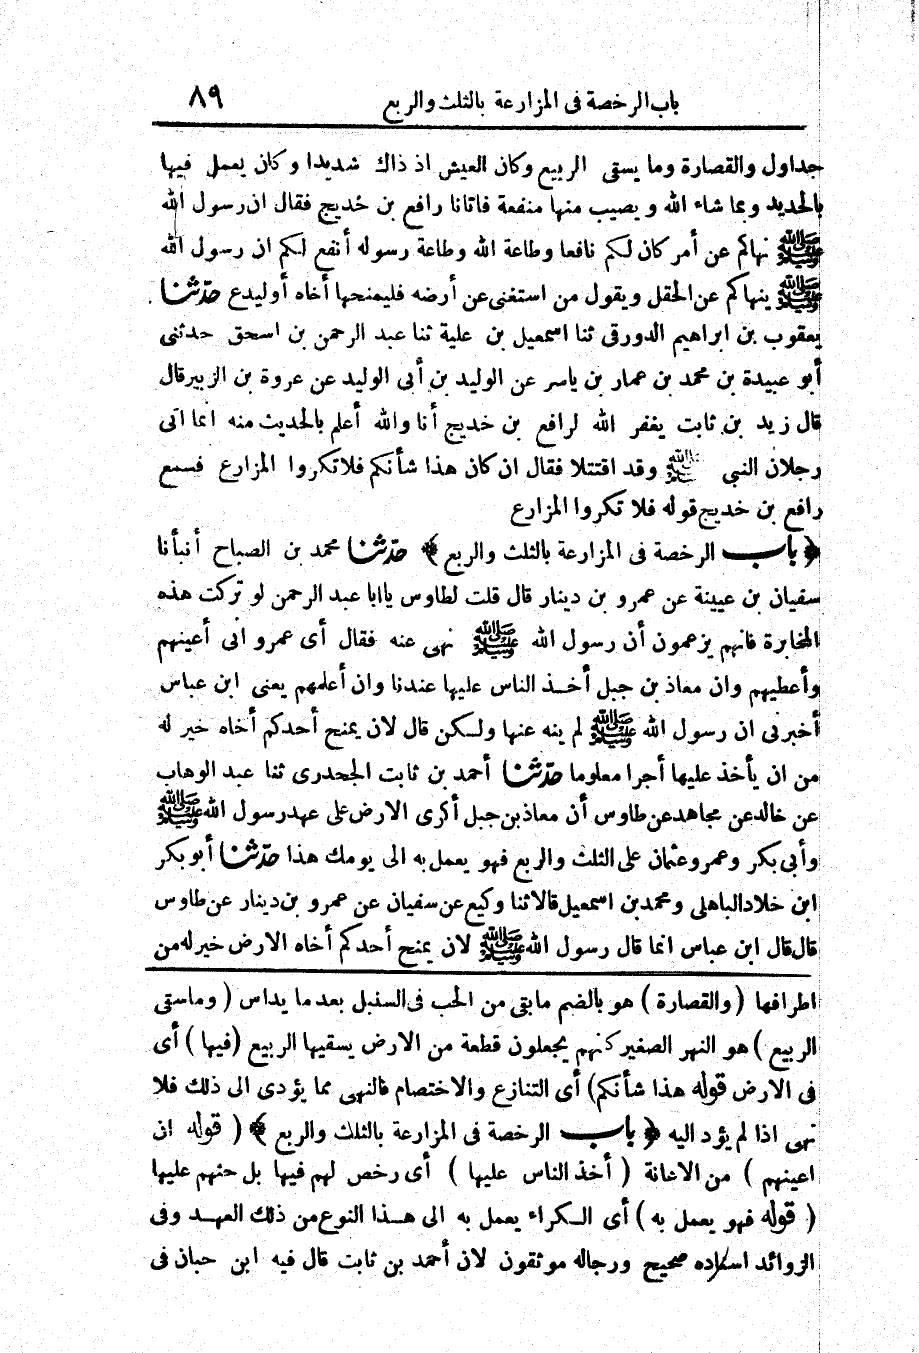 باب الرخصة فى المزارعة بالثلث والربع ٨٩
جداول والقصارة وما يستى الربيع وكان العيش اذ ذاك شديدا وكان يعمل فيها
بالحديد وبما شاء الله ويصيب منها منفعة فاتانا رافع بن خديج فقال ان رسول الله
ﷺ نهاكم عن أمر كان لكم نافعا وطاعة الله وطاعة رسوله أنفع لكم ان رسول الله
ﷺ ينهاكم عن الحقل ويقول من استغنى عن أرضه فليمنحها أخاه أوليدع حدّثنا
يعقوب بن ابراهيم الدورقى ثنا اسمعيل بن علية ثنا عبد الرحمن بن اسحق حدثنى
أبو عبيدة بن محمد بن عمار بن ياسر عن الوليد بن أبى الوليد عن عروة بن الزبير قال
قال زيد بن ثابت يغفر الله لرافع بن خديج أنا والله أعلم بالحديث منه انما اتى
رجلان النبى ﷺ وقد اقتتلا فقال ان كان هذا شأنكم فلا تكروا المزارع فسمع
رافع بن خديج قوله فلا تكروا المزارع
﴿ باب الرخصة فى المزارعة بالثلث والربع ﴾ حدّثنا محمد بن الصباح أنبأنا
سفيان بن عيينة عن عمرو بن دينار قال قلت لطاوس يا ابا عبد الرحمن لو تركت هذه
المخابرة فانهم يزعمون أن رسول الله ﷺ نهى عنه فقال أى عمرو انى أعينهم
وأعطيهم وان معاذ بن جبل أخذ الناس عليها عندنا وان أعلمهم يعنى ابن عباس
أخبرنى ان رسول الله ﷺ لم ينه عنها ولكن قال لان يمنح أحدكم أخاه خير له
من ان يأخذ عليها أجرا معلوما حدّثنا أحمد بن ثابت الجحدرى ثنا عبد الوهاب
عن خالد عن مجاهد عن طاوس أن معاذ بن جبل أكرى الارض على عهد رسول الله ﷺ
وأبى بكر وعمر وعثمان على الثلث والربع فهو يعمل به الى يومك هذا حدّثنا أبو بكر
ابن خلاد الباهلى ومحمد بن اسمعيل قالا ثنا وكيع عن سفيان عن عمرو بن دينار عن طاوس
قال قال ابن عباس انما قال رسول الله ﷺ لان يمنح أحدكم أخاه الارض خير له من
اطرافها ( والقصارة ) هو بالضم ما بقى من الحب فى السنبل بعد ما يداس ( وماستى
الربيع ) هو النهر الصغير كنهم يجعلون قطعة من الارض يسقيها الربيع ( فيها ) أى
فى الارض قوله هذا شأنكم ) أى التنازع والاختصام فالنهى مما يؤدى الى ذلك فلا
نهى اذا لم يؤد اليه ﴿ باب الرخصة فى المزارعة بالثلث والربع ﴾ ( قوله ان
اعينهم ) من الاعانة ( أخذ الناس عليها ) أى رخص لهم فيها بل حثهم عليها
( قوله فهو يعمل به ) أى الكراء يعمل به الى هذا النوع من ذلك العهد وفى
الزوائد اسناده صحيح ورجاله موثقون لان أحمد بن ثابت قال فيه ابن حبان فى